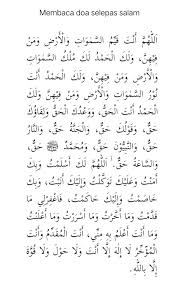 Membaca doa selepas salam
اَللّٰهُمَّ أَنْتَ قَيِّمُ السَّمَوَاتِ وَالْأَرْضِ وَمَنْ
فِيْهِنَّ، وَلَكَ الْحَمْدُ لَكَ مُلْكُ السَّمَوَاتِ
وَالْأَرْضِ وَمَنْ فِيْهِنَّ، وَلَكَ الْحَمْدُ أَنْتَ
نُوْرُ السَّمَوَاتِ وَالْأَرْضِ وَمَنْ فِيْهِنَّ، وَلَكَ
الْحَمْدُ أَنْتَ الْحَقُّ، وَوَعْدُكَ الْحَقُّ وَلِقَاؤُكَ
حَقٌّ، وَقَوْلُكَ حَقٌّ، وَالْجَنَّةُ حَقٌّ، وَالنَّارُ
حَقٌّ، وَالنَّبِيُّوْنَ حَقٌّ، وَمُحَمَّدٌ ﷺ حَقٌّ،
وَالسَّاعَةُ حَقٌّ! اَللّٰهُمَّ لَكَ أَسْلَمْتُ وَبِكَ
آمَنْتُ وَعَلَيْكَ تَوَكَّلْتُ وَإِلَيْكَ أَنَبْتُ، وَبِكَ
خَاصَمْتُ وَإِلَيْكَ حَاكَمْتُ، فَاغْفِرْلِي مَا
قَدَّمْتُ وَمَا أَخَّرْتُ وَمَا أَسْرَرْتُ وَمَا أَعْلَنْتُ
وَمَا أَنْتَ أَعْلَمُ بِهِ مِنِّي، أَنْتَ الْمُقَدِّمُ وَأَنْتَ
الْمُؤَخِّرُ لَا إِلٰهَ إِلَّا أَنْتَ وَلَا حَوْلَ وَلَا قُوَّةَ
إِلَّا بِاللهِ.